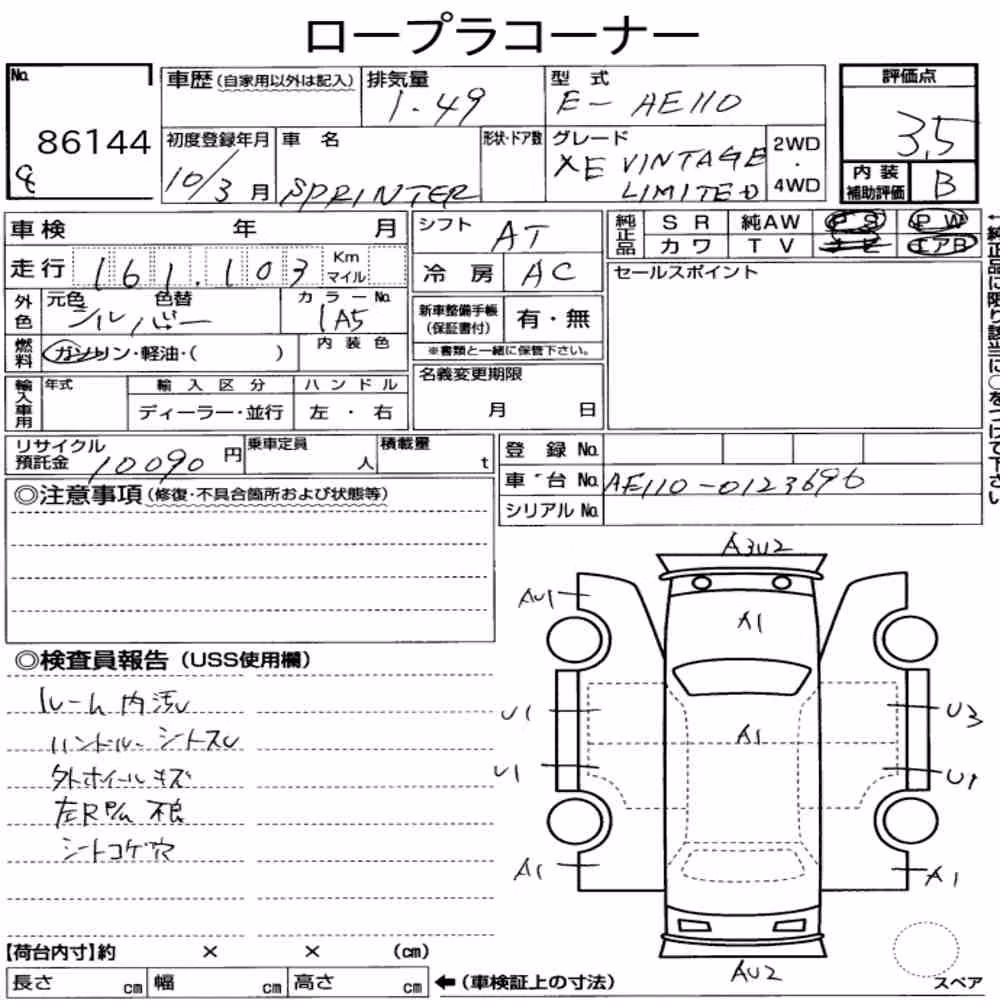 ロープラコーナー
No. 86144
車歴 (自家用以外は記入) 排気量 1.49 型式 E- AE110 評価点 3.5
初度登録年月 10/3月 車名 SPRINTER 形状・ドア数 グレード XE VINTAGE LIMITED 2WD・4WD 内装補助評価 B
車検 年 月 シフト AT 純正品 SR 純AW PS PW
カワ TV ナビ エアB
走行 161,103 Km マイル 冷房 AC セールスポイント
外色 元色 シルバー 色替 カラーNo. 1A5 新車整備手帳(保証書付) 有・無
※書類と一緒に保管下さい。
燃料 ガソリン・軽油・( ) 内装色
輸入車用 年式 輸入区分 ハンドル 名義変更期限
ディーラー・並行 左・右 月 日
←純正品に限り該当に○をつけて下さい
リサイクル預託金 10090円 乗車定員 人 積載量 t 登録No.
車台No. AE110-0123696
シリアルNo.
◎注意事項(修復・不具合箇所および状態等)
◎検査員報告(USS使用欄)
ルーム内汚レ
ハンドル・シートスレ
外ホイールキズ
シートコゲ穴
A3U2
AU1
A1
U1
A1
U3
U1
U1
A1
A1
AU2
【荷台内寸】約 × × (cm)
長さ cm 幅 cm 高さ cm ←(車検証上の寸法)
スペア